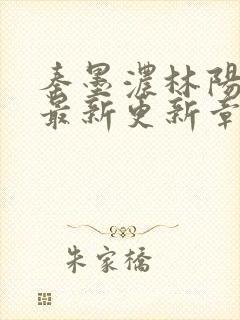 秦墨濃林陽
最新更新章
朱家橋